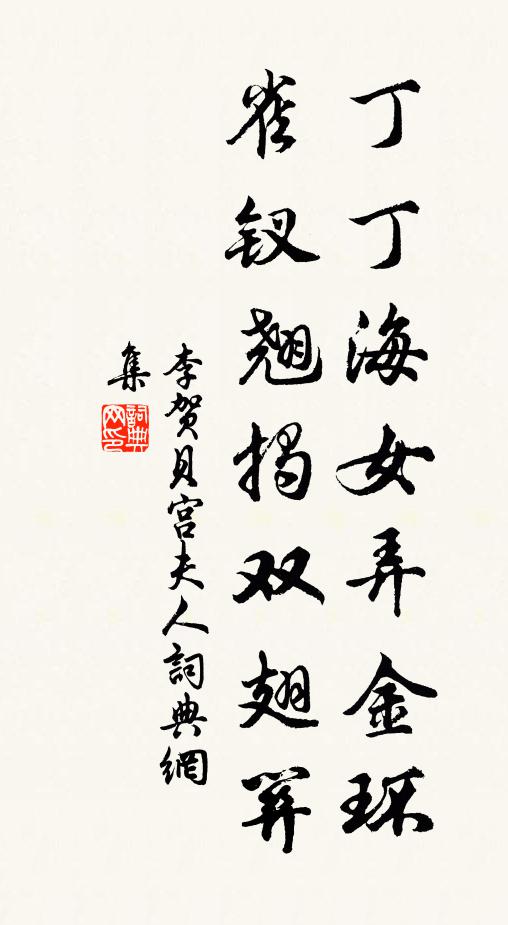 丁丁海女弄金环
雀钗翘揭双翅关
李贺贝宫夫人詞典網
集
詞典网印